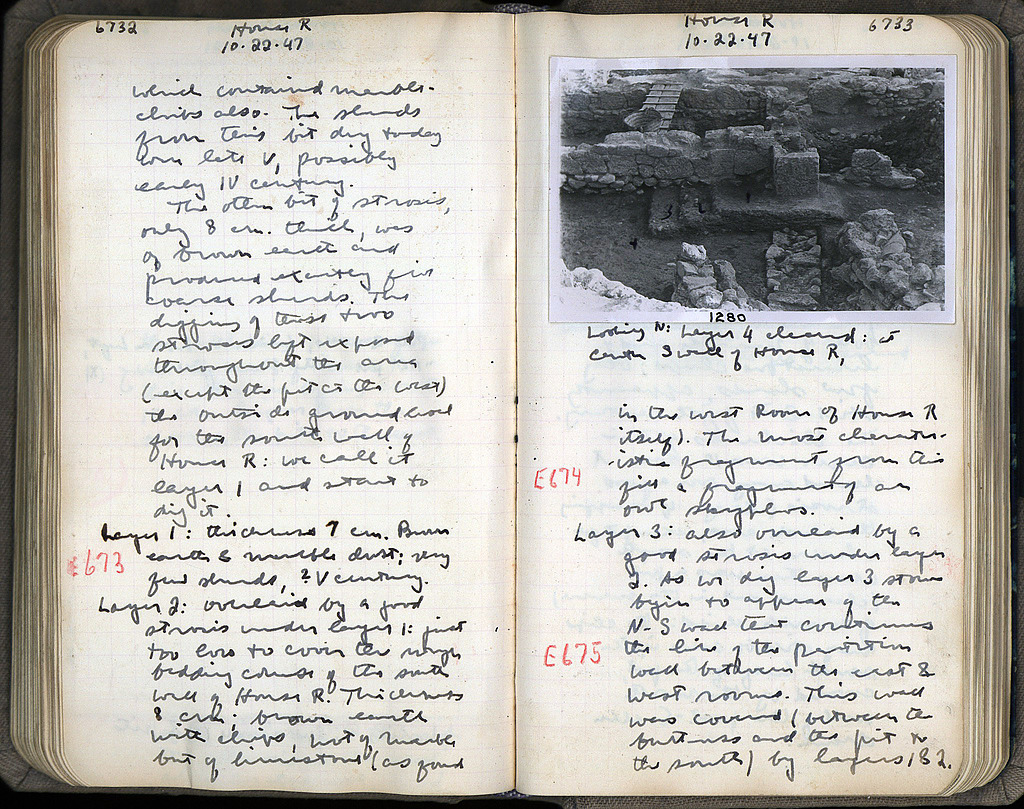 6732
House R
10.22.47
which contained marble
chips also. The sherds
from this bit dug today
were late V, possibly
early IV century.
The other bit of strosis,
only 8 cm. thick, was
of brown earth and
produced exactly five
coarse sherds. The
digging of these two
stroses left exposed
throughout the area
(except the pit at the west)
the outside ground level
for the south wall of
House R: we call it
layer 1 and start to
dig it.
Layer 1: thickness 7 cm. Brown
earth & marble dust; very
E673
few sherds, ? V century.
Layer 2: overlaid by a good
strosis under layer 1: just
too low to cover the rough
bedding course of the south
wall of House R. Thickness
8 cm: brown earth
with chips, not of marble
but of limestone (as found
House R
6733
10.22.47
3 2 1
4
1280
Looking N: Layer 4 cleared: at
center S wall of House R,
in the west Room of House R
itself). The most character-
istic fragment from this
E674
fill a fragment of an
owl skyphos.
Layer 3: also overlaid by a
good strosis under layer
2. As we dig layer 3 stones
begin to appear of the
N-S wall that continues
E675
the line of the partition
wall between the east &
west rooms. This wall
was covered (between the
buttress and the pit to
the south) by layers 1 & 2.